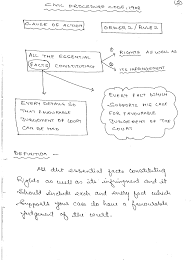 CIVIL PROCEDURE CODE, 1908
②
CAUSE OF ACTION
ORDER 2 / RULE 2
ALL THE ESSENTIAL
FACTS CONSTITUTING
RIGHTS AS WELL AS
ITS INFRINGEMENT
EVERY DETAILS SO
THAT FAVOURABLE
JUDGEMENT OF COURT
CAN BE HAD
EVERY FACT WHICH
SUPPORTS THE CASE
FOR FAVOURABLE
JUDGEMENT OF THE
COURT
DEFINATION :-
All the essential facts constituting
Rights as well as its infringment and it
should include each and every fact which
supports your case to have a favourable
judgement of the court.